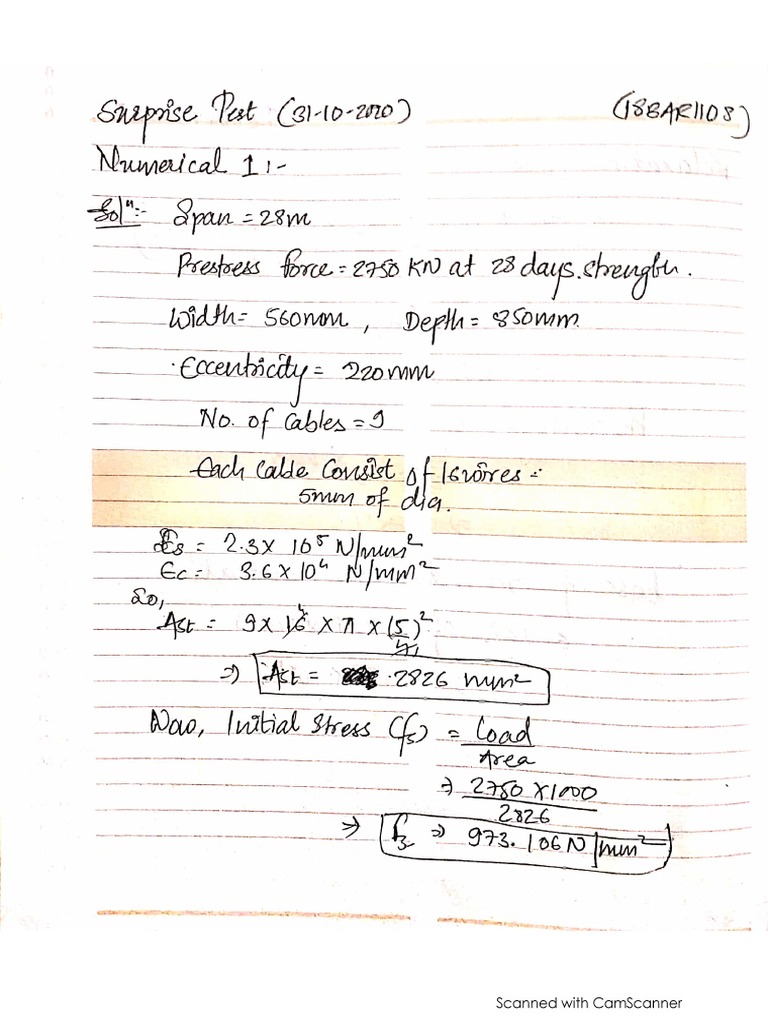 Surprise Test (31-10-2020) (18BAR1108)
Numerical 1:-
Solⁿ:- Span = 28m
Prestress force = 2750 KN at 28 days. strength.
Width = 560mm, Depth = 850mm
Eccentricity = 220mm
No. of Cables = 9
Each Cable Consist of 16 wires :-
5mm of dia.
Es = 2.3 × 10⁵ N/mm²
Ec = 3.6 × 10⁴ N/mm²
So,
Ast = 9 × 16 × π × (5)²
4
⇒ Ast = 2826 mm²
Now, Initial Stress (fs) = Load
Area
⇒ 2750 × 1000
2826
⇒ fs ⇒ 973.106 N/mm²
Scanned with CamScanner